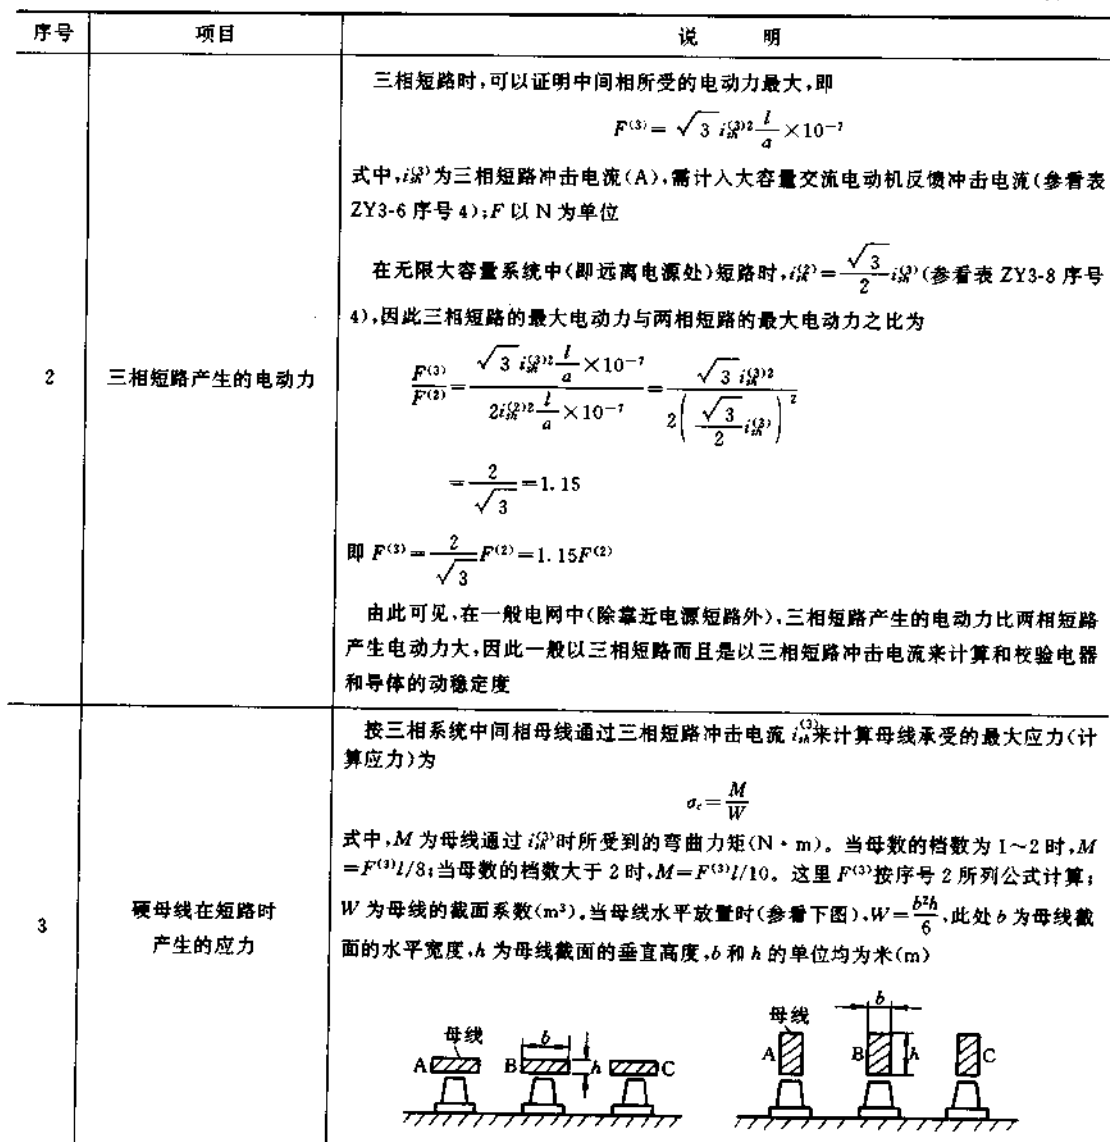 序号 项目 说 明
三相短路时,可以证明中间相所受的电动力最大,即
F⁽³⁾= √3 i_sh⁽³⁾² l/a ×10⁻⁷
式中,i_sh⁽³⁾为三相短路冲击电流(A),需计入大容量交流电动机反馈冲击电流(参看表
ZY3-6 序号 4);F 以 N 为单位
在无限大容量系统中(即远离电源处)短路时,i_sh⁽²⁾=√3/2 i_sh⁽³⁾(参看表 ZY3-8 序号
4),因此三相短路的最大电动力与两相短路的最大电动力之比为
2 三相短路产生的电动力
F⁽³⁾/F⁽²⁾ = (√3 i_sh⁽³⁾² l/a ×10⁻⁷)/(2i_sh⁽²⁾² l/a ×10⁻⁷) = (√3 i_sh⁽³⁾²)/(2(√3/2 i_sh⁽³⁾)²)
=2/√3=1.15
即 F⁽³⁾=2/√3 F⁽²⁾=1.15F⁽²⁾
由此可见,在一般电网中(除靠近电源短路外),三相短路产生的电动力比两相短路
产生电动力大,因此一般以三相短路而且是以三相短路冲击电流来计算和校验电器
和导体的动稳定度
3 硬母线在短路时
产生的应力
按三相系统中间相母线通过三相短路冲击电流 i_sh⁽³⁾来计算母线承受的最大应力(计
算应力)为
σ_c=M/W
式中,M 为母线通过 i_sh⁽³⁾时所受到的弯曲力矩(N·m)。当母数的档数为 1~2 时,M
=F⁽³⁾l/8;当母数的档数大于 2 时,M=F⁽³⁾l/10。这里 F⁽³⁾按序号 2 所列公式计算;
W 为母线的截面系数(m³)。当母线水平放置时(参看下图),W=b²h/6,此处 b 为母线截
面的水平宽度,h 为母线截面的垂直高度,b 和 h 的单位均为米(m)
母线 b
A B h C
母线 b
A B h C